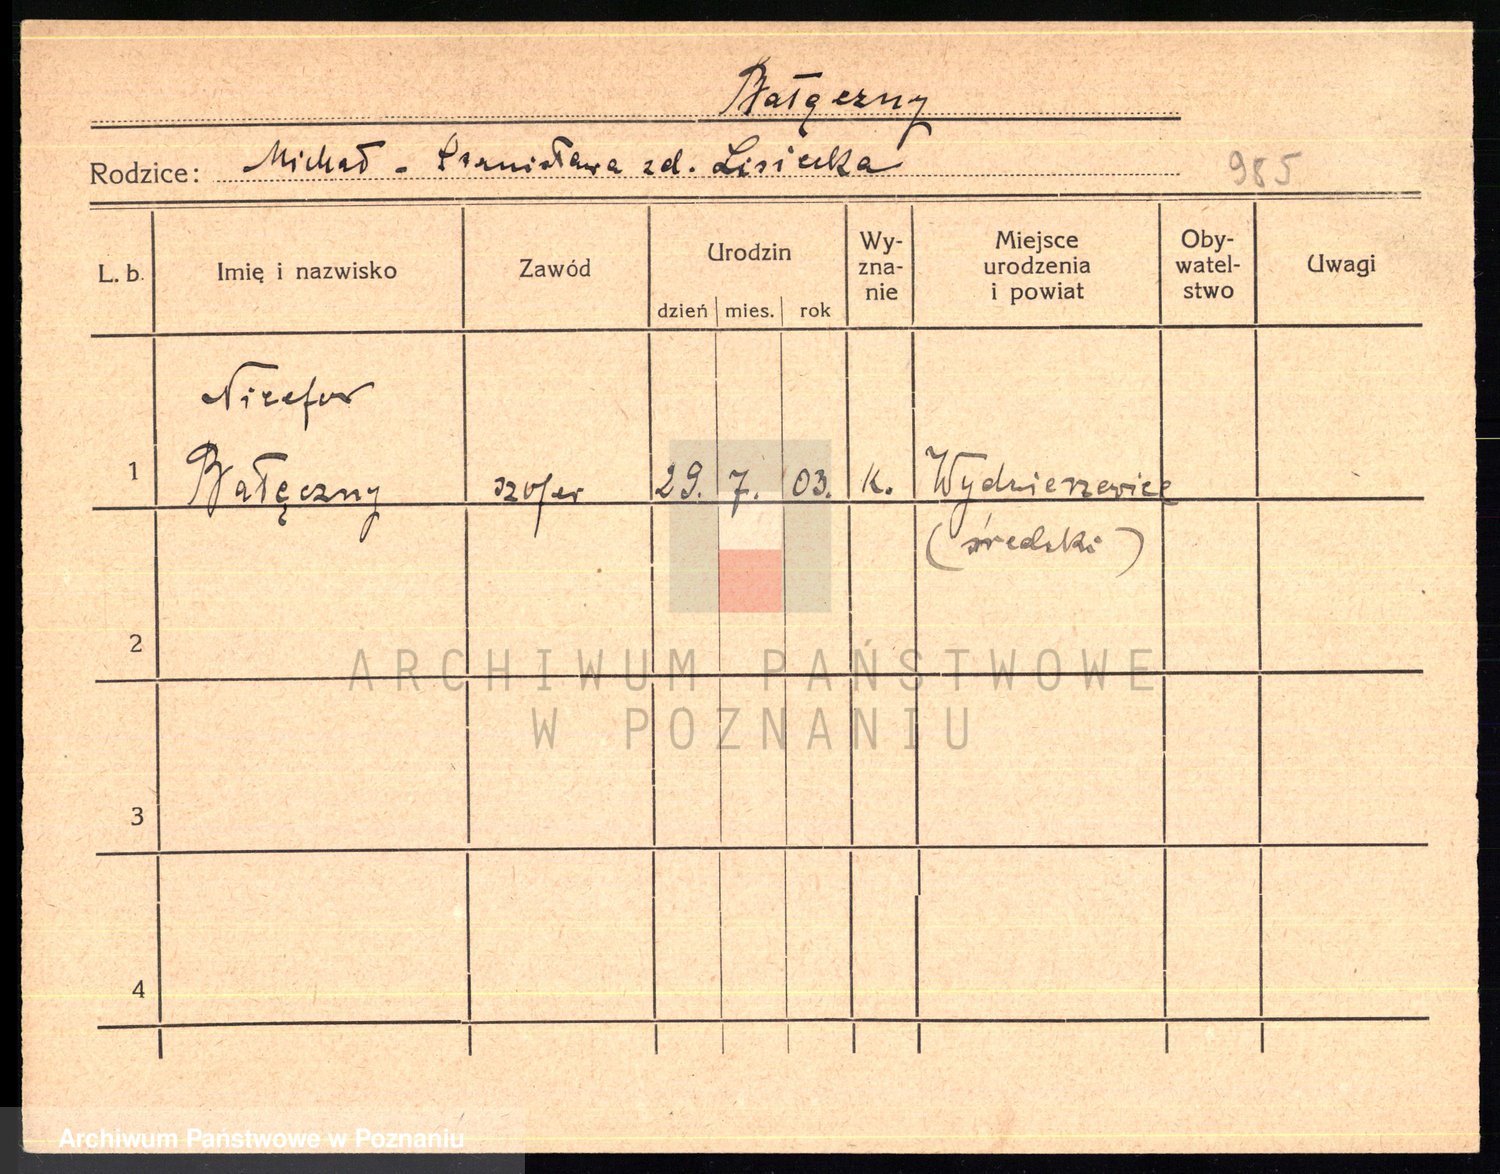 Bałęczny
Rodzice: Michał - Stanisława zd. Lisiecka
985
L. b. Imię i nazwisko Zawód Urodzin Wy-zna-nie Miejsce urodzenia i powiat Oby-watel-stwo Uwagi
dzień mies. rok
Nicefor
1 Bałęczny szofer 29. 7. 03. K. Wydzierzewice
(średzki)
2
3
4
ARCHIWUM PAŃSTWOWE
W POZNANIU
Archiwum Państwowe w Poznaniu